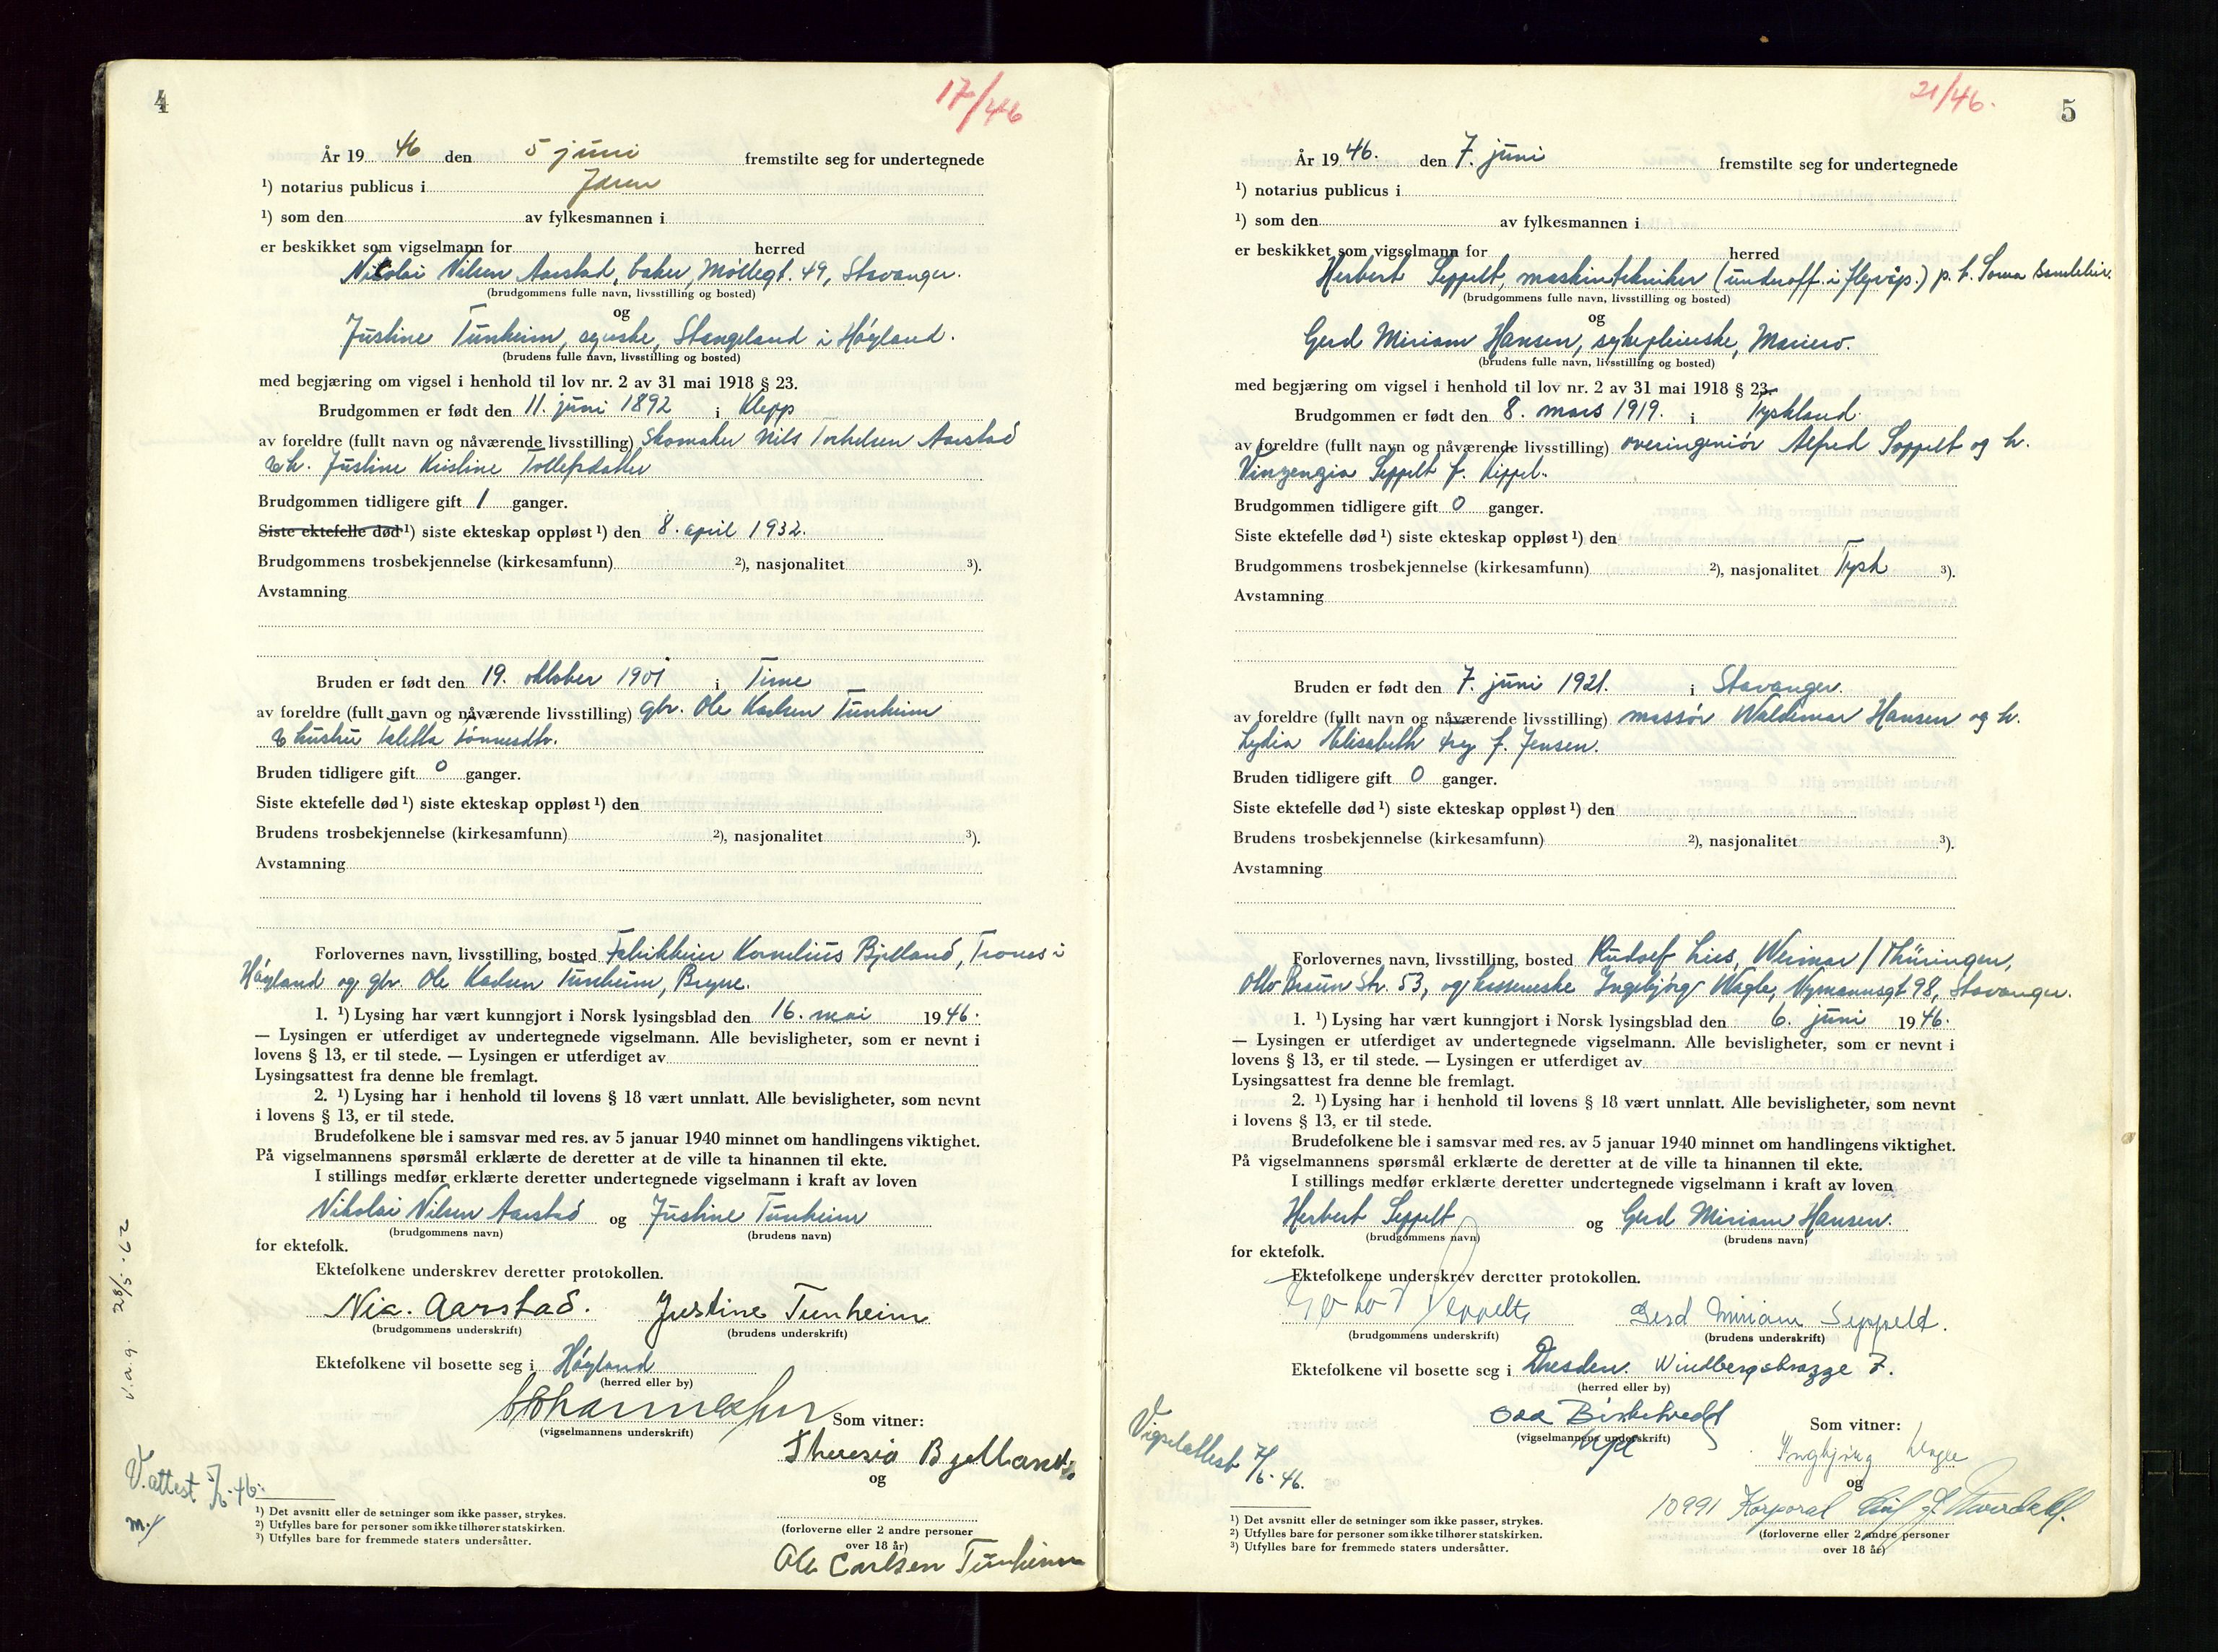 4
17/46
År 19 46 den 5 juni fremstilte seg for undertegnede
¹) notarius publicus i Jæren
¹) som den av fylkesmannen i
er beskikket som vigselmann for herred
Nikolai Nilsen Aarstad, baker, Møllegt. 49, Stavanger.
(brudgommens fulle navn, livsstilling og bosted)
og
Justine Tunheim, syerske, Stangeland i Høyland.
(brudens fulle navn, livsstilling og bosted)
med begjæring om vigsel i henhold til lov nr. 2 av 31 mai 1918 § 23.
Brudgommen er født den 11. juni 1892 i Klepp
av foreldre (fullt navn og nåværende livsstilling) Skomaker Nils Torkelsen Aarstad
& h. Justine Kristine Tollefsdatter
Brudgommen tidligere gift 1 ganger.
Siste ektefelle død ¹) siste ekteskap oppløst ¹) den 8. april 1932.
Brudgommens trosbekjennelse (kirkesamfunn) ²), nasjonalitet ³).
Avstamning
Bruden er født den 19. oktober 1901 i Time
av foreldre (fullt navn og nåværende livsstilling) gbr. Ole Karlsen Tunheim
& hustru Taletta Tønnesdtr.
Bruden tidligere gift 0 ganger.
Siste ektefelle død ¹) siste ekteskap oppløst ¹) den
Brudens trosbekjennelse (kirkesamfunn) ²), nasjonalitet ³).
Avstamning
Forlovernes navn, livsstilling, bosted Fabrikkeier Kornelius Bjelland, Trones i
Høyland og gbr. Ole Karlsen Tunheim, Bryne.
1. ¹) Lysing har vært kunngjort i Norsk lysingsblad den 16. mai 1946.
— Lysingen er utferdiget av undertegnede vigselmann. Alle bevisligheter, som er nevnt i
lovens § 13, er til stede. — Lysingen er utferdiget av
Lysingsattest fra denne ble fremlagt.
2. ¹) Lysing har i henhold til lovens § 18 vært unnlatt. Alle bevisligheter, som nevnt
i lovens § 13, er til stede.
Brudefolkene ble i samsvar med res. av 5 januar 1940 minnet om handlingens viktighet.
På vigselmannens spørsmål erklærte de deretter at de ville ta hinannen til ekte.
I stillings medfør erklærte deretter undertegnede vigselmann i kraft av loven
Nikolai Nilsen Aarstad og Justine Tunheim
(brudgommens navn) (brudens navn)
for ektefolk.
Ektefolkene underskrev deretter protokollen.
Nic. Aarstad. Justine Tunheim
(brudgommens underskrift) (brudens underskrift)
Ektefolkene vil bosette seg i Høyland
(herred eller by)
(vigselmannens underskrift)
Som vitner:
Theresia Bjelland
og
(forloverne eller 2 andre personer
over 18 år)
Ole Carlsen Tunheim
v.a.g. 28/5.-62
V. attest 5/6-46.
¹) Det avsnitt eller de setninger som ikke passer, strykes.
²) Utfylles bare for personer som ikke tilhører statskirken.
³) Utfylles bare for fremmede staters undersåtter.
5
21/46.
År 19 46. den 7. juni fremstilte seg for undertegnede
¹) notarius publicus i
¹) som den av fylkesmannen i
er beskikket som vigselmann for herred
Herbert Seppelt, maskintekniker (underoff. i flyvåp.) p. t. Soma Samleleir.
(brudgommens fulle navn, livsstilling og bosted)
og
Gerd Miriam Hansen, sykepleierske, Mariero.
(brudens fulle navn, livsstilling og bosted)
med begjæring om vigsel i henhold til lov nr. 2 av 31 mai 1918 § 23.
Brudgommen er født den 8. mars 1919. i Tyskland.
av foreldre (fullt navn og nåværende livsstilling) overingeniør Alfred Seppelt og h.
Vinzenzia Seppelt f. Kippel.
Brudgommen tidligere gift 0 ganger.
Siste ektefelle død ¹) siste ekteskap oppløst ¹) den
Brudgommens trosbekjennelse (kirkesamfunn) ²), nasjonalitet Tysk ³).
Avstamning
Bruden er født den 7. juni 1921. i Stavanger.
av foreldre (fullt navn og nåværende livsstilling) massør Waldemar Hansen og h.
Lydia Elisabeth f. Jensen.
Bruden tidligere gift 0 ganger.
Siste ektefelle død ¹) siste ekteskap oppløst ¹) den
Brudens trosbekjennelse (kirkesamfunn) ²), nasjonalitet ³).
Avstamning
Forlovernes navn, livsstilling, bosted Rudolf Lies, Weimar / Thüringen,
Otto Braun Str. 53, og Ingebjørg Wagle, Nymannsgt 98, Stavanger.
1. ¹) Lysing har vært kunngjort i Norsk lysingsblad den 6. juni 1946.
— Lysingen er utferdiget av undertegnede vigselmann. Alle bevisligheter, som er nevnt i
lovens § 13, er til stede. — Lysingen er utferdiget av
Lysingsattest fra denne ble fremlagt.
2. ¹) Lysing har i henhold til lovens § 18 vært unnlatt. Alle bevisligheter, som nevnt
i lovens § 13, er til stede.
Brudefolkene ble i samsvar med res. av 5 januar 1940 minnet om handlingens viktighet.
På vigselmannens spørsmål erklærte de deretter at de ville ta hinannen til ekte.
I stillings medfør erklærte deretter undertegnede vigselmann i kraft av loven
Herbert Seppelt og Gerd Miriam Hansen.
(brudgommens navn) (brudens navn)
for ektefolk.
Ektefolkene underskrev deretter protokollen.
Seppelt Gerd Miriam Seppelt.
(brudgommens underskrift) (brudens underskrift)
Ektefolkene vil bosette seg i Dresden. Windbergstrasze 7.
(herred eller by)
(vigselmannens underskrift)
Som vitner:
Ingebjørg Wagle
og
10991 Korporal
(forloverne eller 2 andre personer
over 18 år)
Vigselattest 7/6-46.
¹) Det avsnitt eller de setninger som ikke passer, strykes.
²) Utfylles bare for personer som ikke tilhører statskirken.
³) Utfylles bare for fremmede staters undersåtter.